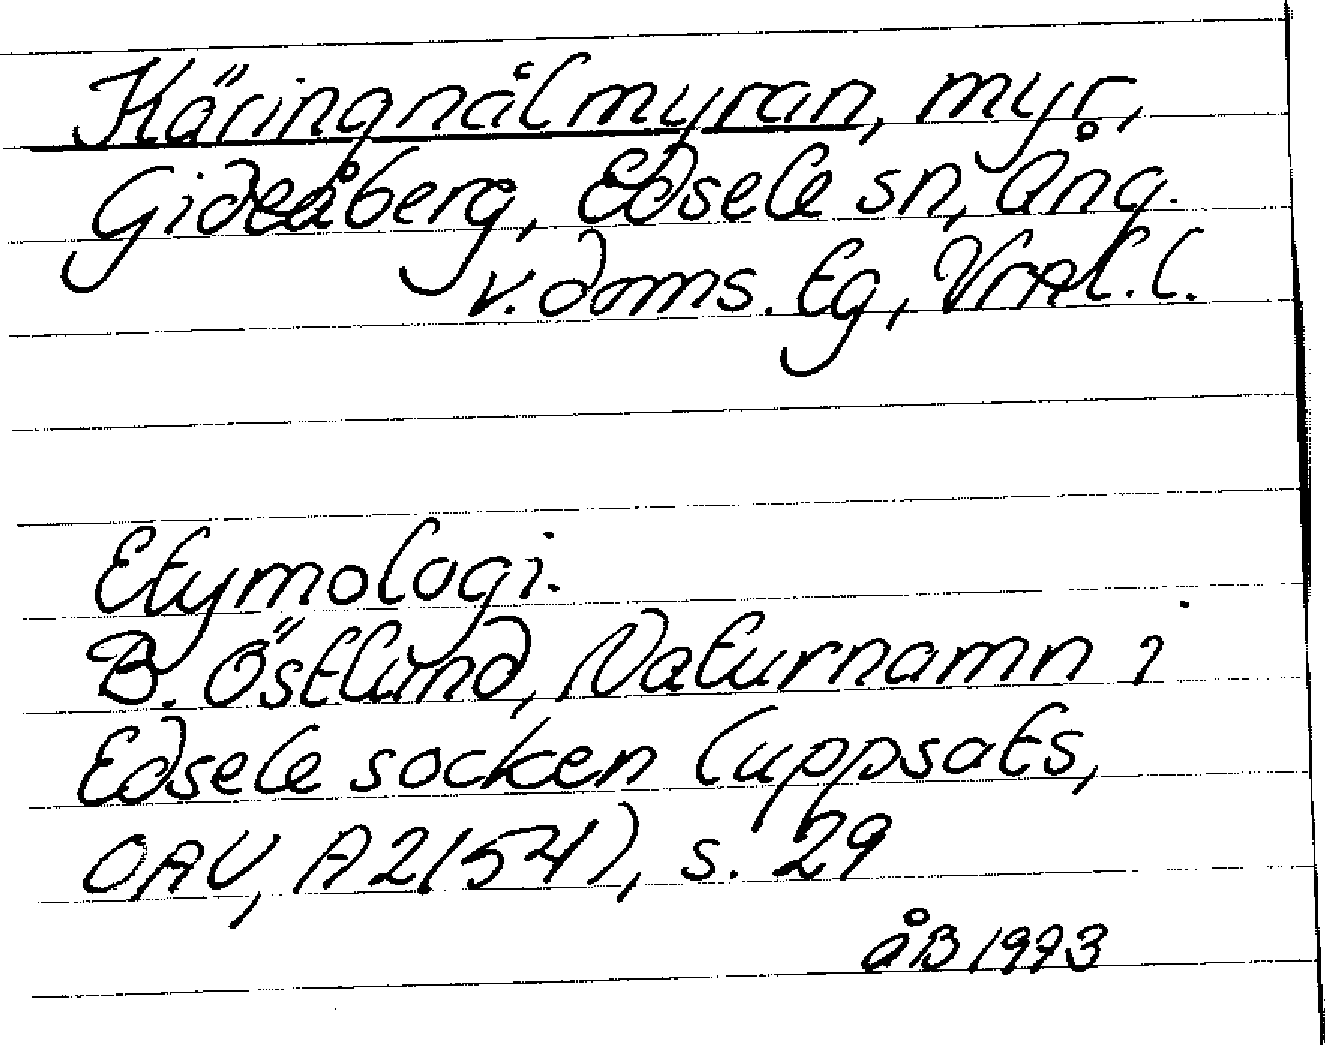 Käringnålmyran, myr,
Gideåberg, Edsele sn, Ång.
v. doms. tg, Vnrl. l.
Etymologi.
B. Östlund, Naturnamn i
Edsele socken (uppsats,
OAU, A2/54), s. 29
åB 1993